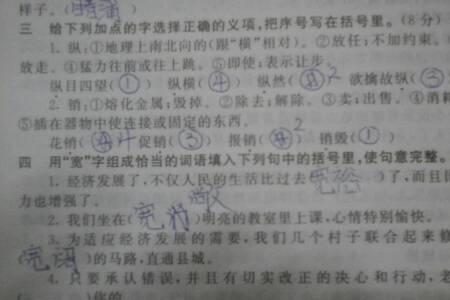 样子。(
三 给下列加点的字选择正确的义项,把序号写在括号里。(8分)
1. 纵:①地理上南北向的(跟“横”相对)。②放任;不加约束。
放走。④猛力往前或往上跳。⑤即使;表示让步。
纵目四望(①) 纵横(④) 纵然( 2 欲擒故纵(③
2. 销:①熔化金属;毁掉。②除去;解除。③卖;出售。④消耗
⑤插在器物中使连接或固定的东西。
花销( 4 促销(③) 报销( 2 销毁(①)
四 用“宽”字组成恰当的词语填入下列句中的括号里,使句意完整。
1. 经济发展了,不仅人民的生活比过去(宽裕)了,而且
力也增强了。
2. 我们坐在(宽敞)明亮的教室里上课,心情特别愉快。
3. 为适应经济发展的需要,我们几个村子联合起来修
宽阔)的马路,直通县城。
4. 只要承认错误,并且有切实改正的决心和行动,老
)你的